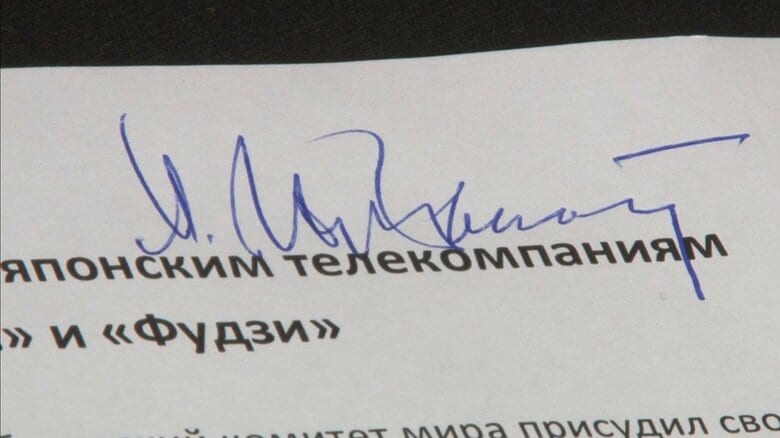 японским телекомпаниям
» и «Фудзи»
комитет мира присудил сво